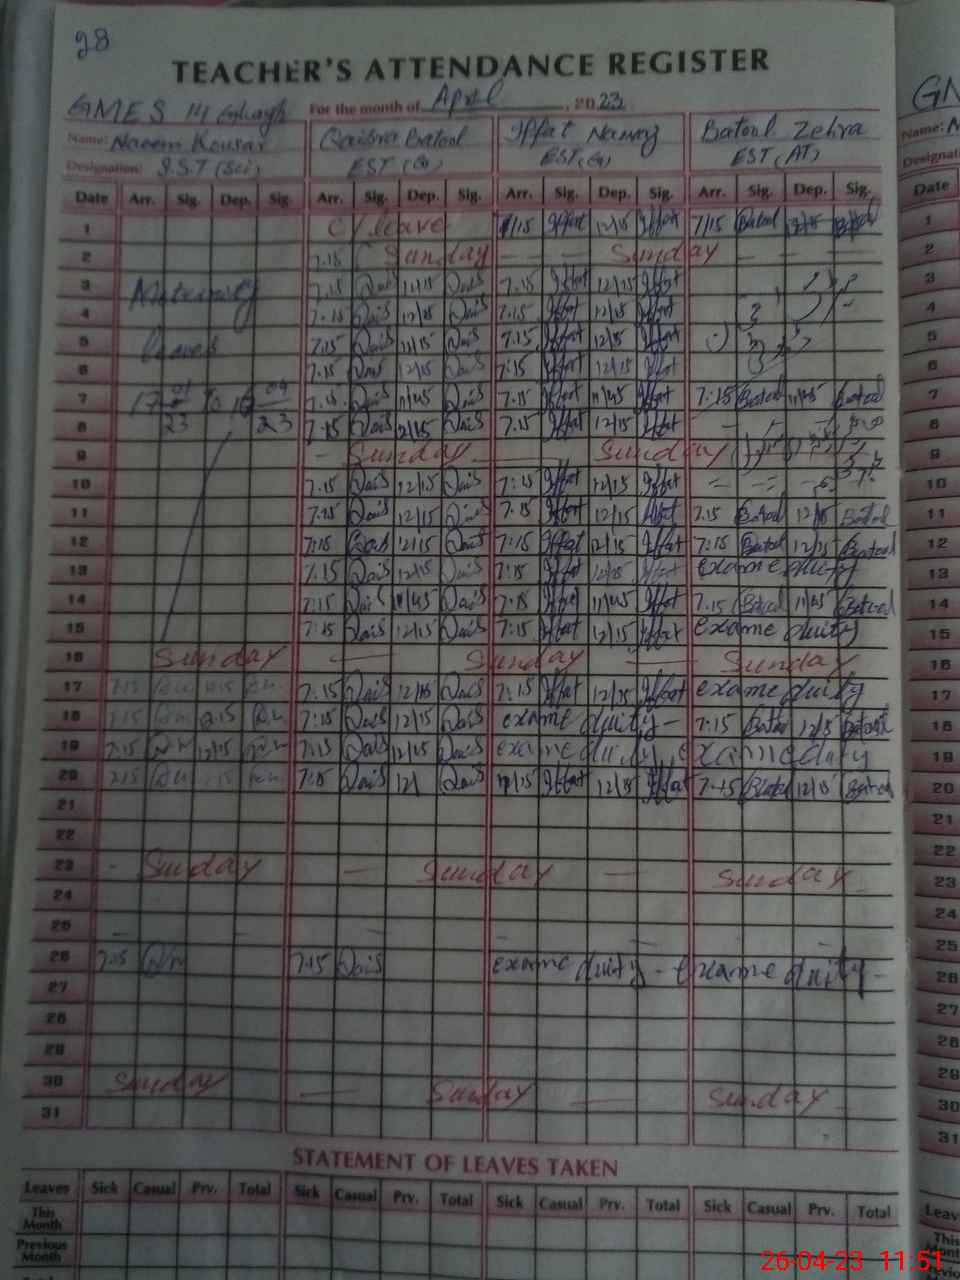 98
TEACHER'S ATTENDANCE REGISTER
GMES 14 For the month of April, 2023
Name: Naeem Kousar Qaisra Batool Iffat Nawaz Batool Zehra
Designation: S.S.T (Sci) EST (G) EST (G) EST (AT)
Date Arr. Sig. Dep. Sig. Arr. Sig. Dep. Sig. Arr. Sig. Dep. Sig. Arr. Sig. Dep. Sig. Date
1 C/leave 7/15 Iffat 12/15 Iffat 7/15 Batool 12/15 Batool 1
2 7.15 Sunday Sunday 2
3 7.15 Qais 12/15 Qais 7.15 Iffat 12/15 Iffat 3
4 Maternity 7.15 Qais 12/15 Qais 7.15 Iffat 12/15 Iffat 4
5 leaves 7.15 Qais 12/15 Qais 7.15 Iffat 12/15 Iffat 5
6 7.15 Qais 12/15 Qais 7:15 Iffat 12/15 Iffat 6
7 17 01 to 16 04 7.15 Qais 11/45 Qais 7.15 Iffat 11/45 Iffat 7:15 Batool 11/45 Batool 7
8 23 23 7.15 Qais 12/15 Qais 7.15 Iffat 12/15 Iffat 8
9 Sunday Sunday 9
10 7.15 Qais 12/15 Qais 7:15 Iffat 12/15 Iffat 10
11 7.15 Qais 12/15 Qais 7.15 Iffat 12/15 Iffat 7.15 Batool 12/15 Batool 11
12 7:15 Qais 12/15 Qais 7:15 Iffat 12/15 Iffat 7:15 Batool 12/15 Batool 12
13 7.15 Qais 12/15 Qais 7:15 Iffat 12/15 Iffat exame duity 13
14 7:15 Qais 11/45 Qais 7:15 Iffat 11/45 Iffat 7.15 Batool 11/45 Batool 14
15 7:15 Qais 12/15 Qais 7:15 Iffat 12/15 Iffat exame duity 15
16 Sunday Sunday Sunday 16
17 7:15 7:15 Qais 12/15 Qais 7:15 Iffat 12/15 Iffat exame duity 17
18 7:15 12.15 7:15 Qais 12/15 Qais exame duity 7:15 Batool 12/15 Batool 18
19 7:15 12/15 7:15 Qais 12/15 Qais exame duity exame duty 19
20 7:15 7:15 Qais 12/ Qais 7/15 Iffat 12/15 Iffat 7:15 Batool 12/15 Batool 20
21 21
22 22
23 Sunday Sunday Sunday 23
24 24
25 25
26 7:15 7:15 Qais exame duity - exame duity 26
27 27
28 28
29 29
30 Sunday Sunday Sunday 30
31 31
STATEMENT OF LEAVES TAKEN
Leaves Sick Casual Prv. Total Sick Casual Prv. Total Sick Casual Prv. Total Sick Casual Prv. Total
This Month
Previous Month
26-04-23 11:51